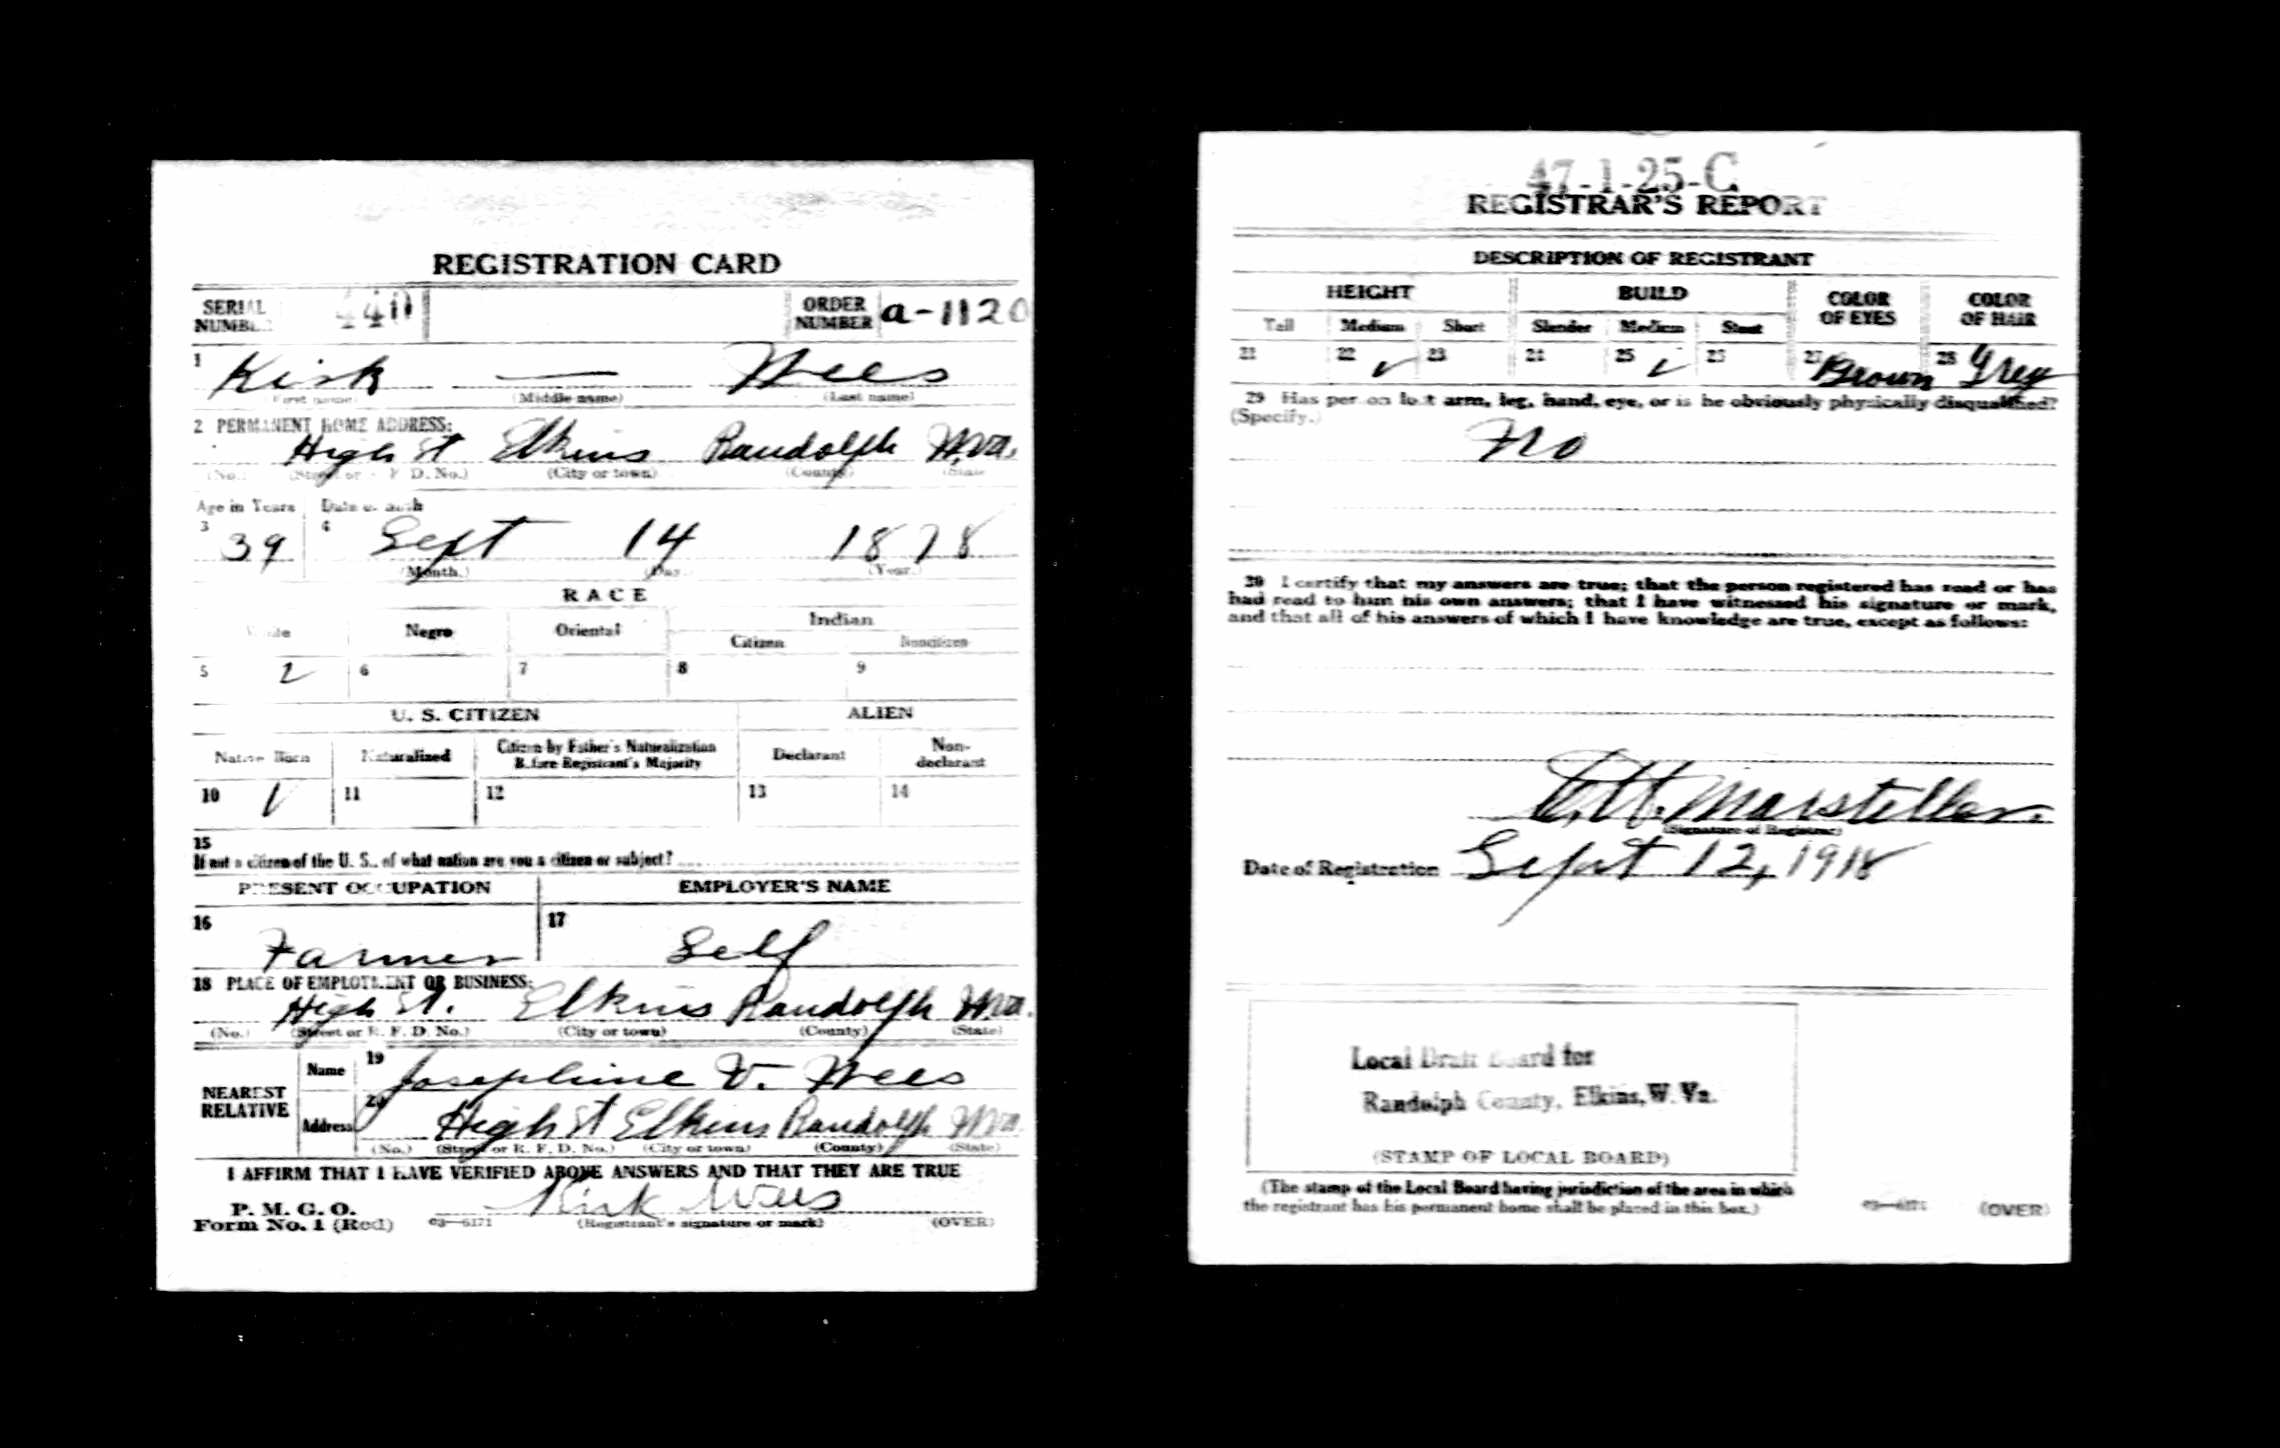 REGISTRATION CARD
SERIAL NUMBER 440 ORDER NUMBER a-1120
1 Kirk — Wees
(First name) (Middle name) (Last name)
2 PERMANENT HOME ADDRESS:
High St Elkins Randolph W.va.
(No.) (Street or R. F. D. No.) (City or town) (County) (State)
Age in Years Date of Birth
3 39 4 Sept 14 1878
(Month.) (Day.) (Year.)
RACE
White Negro Oriental Indian
Citizen Noncitizen
5 ✓ 6 7 8 9
U. S. CITIZEN ALIEN
Native Born Naturalized Citizen by Father's Naturalization Before Registrant's Majority Declarant Non-declarant
10 ✓ 11 12 13 14
15
If not a citizen of the U. S., of what nation are you a citizen or subject?
PRESENT OCCUPATION EMPLOYER'S NAME
16 Farmer 17 Self
18 PLACE OF EMPLOYMENT OR BUSINESS:
High St. Elkins Randolph W.va.
(No.) (Street or R. F. D. No.) (City or town) (County) (State)
NEAREST RELATIVE Name 19 Josephine V. Wees
Address 20 High St Elkins Randolph W.va.
(No.) (Street or R. F. D. No.) (City or town) (County) (State)
I AFFIRM THAT I HAVE VERIFIED ABOVE ANSWERS AND THAT THEY ARE TRUE
P. M. G. O.
Form No. 1 (Red) 03—6171 Kirk Wees
(Registrant's signature or mark) (OVER)
47-1-25-C
REGISTRAR'S REPORT
DESCRIPTION OF REGISTRANT
HEIGHT BUILD COLOR OF EYES COLOR OF HAIR
Tall Medium Short Slender Medium Stout
21 22 ✓ 23 24 25 ✓ 26 27 Brown 28 Grey
29 Has person lost arm, leg, hand, eye, or is he obviously physically disqualified?
(Specify.)
No
30 I certify that my answers are true; that the person registered has read or has
had read to him his own answers; that I have witnessed his signature or mark,
and that all of his answers of which I have knowledge are true, except as follows:
Marsteller
(Signature of Registrar)
Date of Registration Sept 12, 1918
Local Draft Board for
Randolph County, Elkins, W. Va.
(STAMP OF LOCAL BOARD)
(The stamp of the Local Board having jurisdiction of the area in which
the registrant has his permanent home shall be placed in this box.)
03—6171 (OVER)